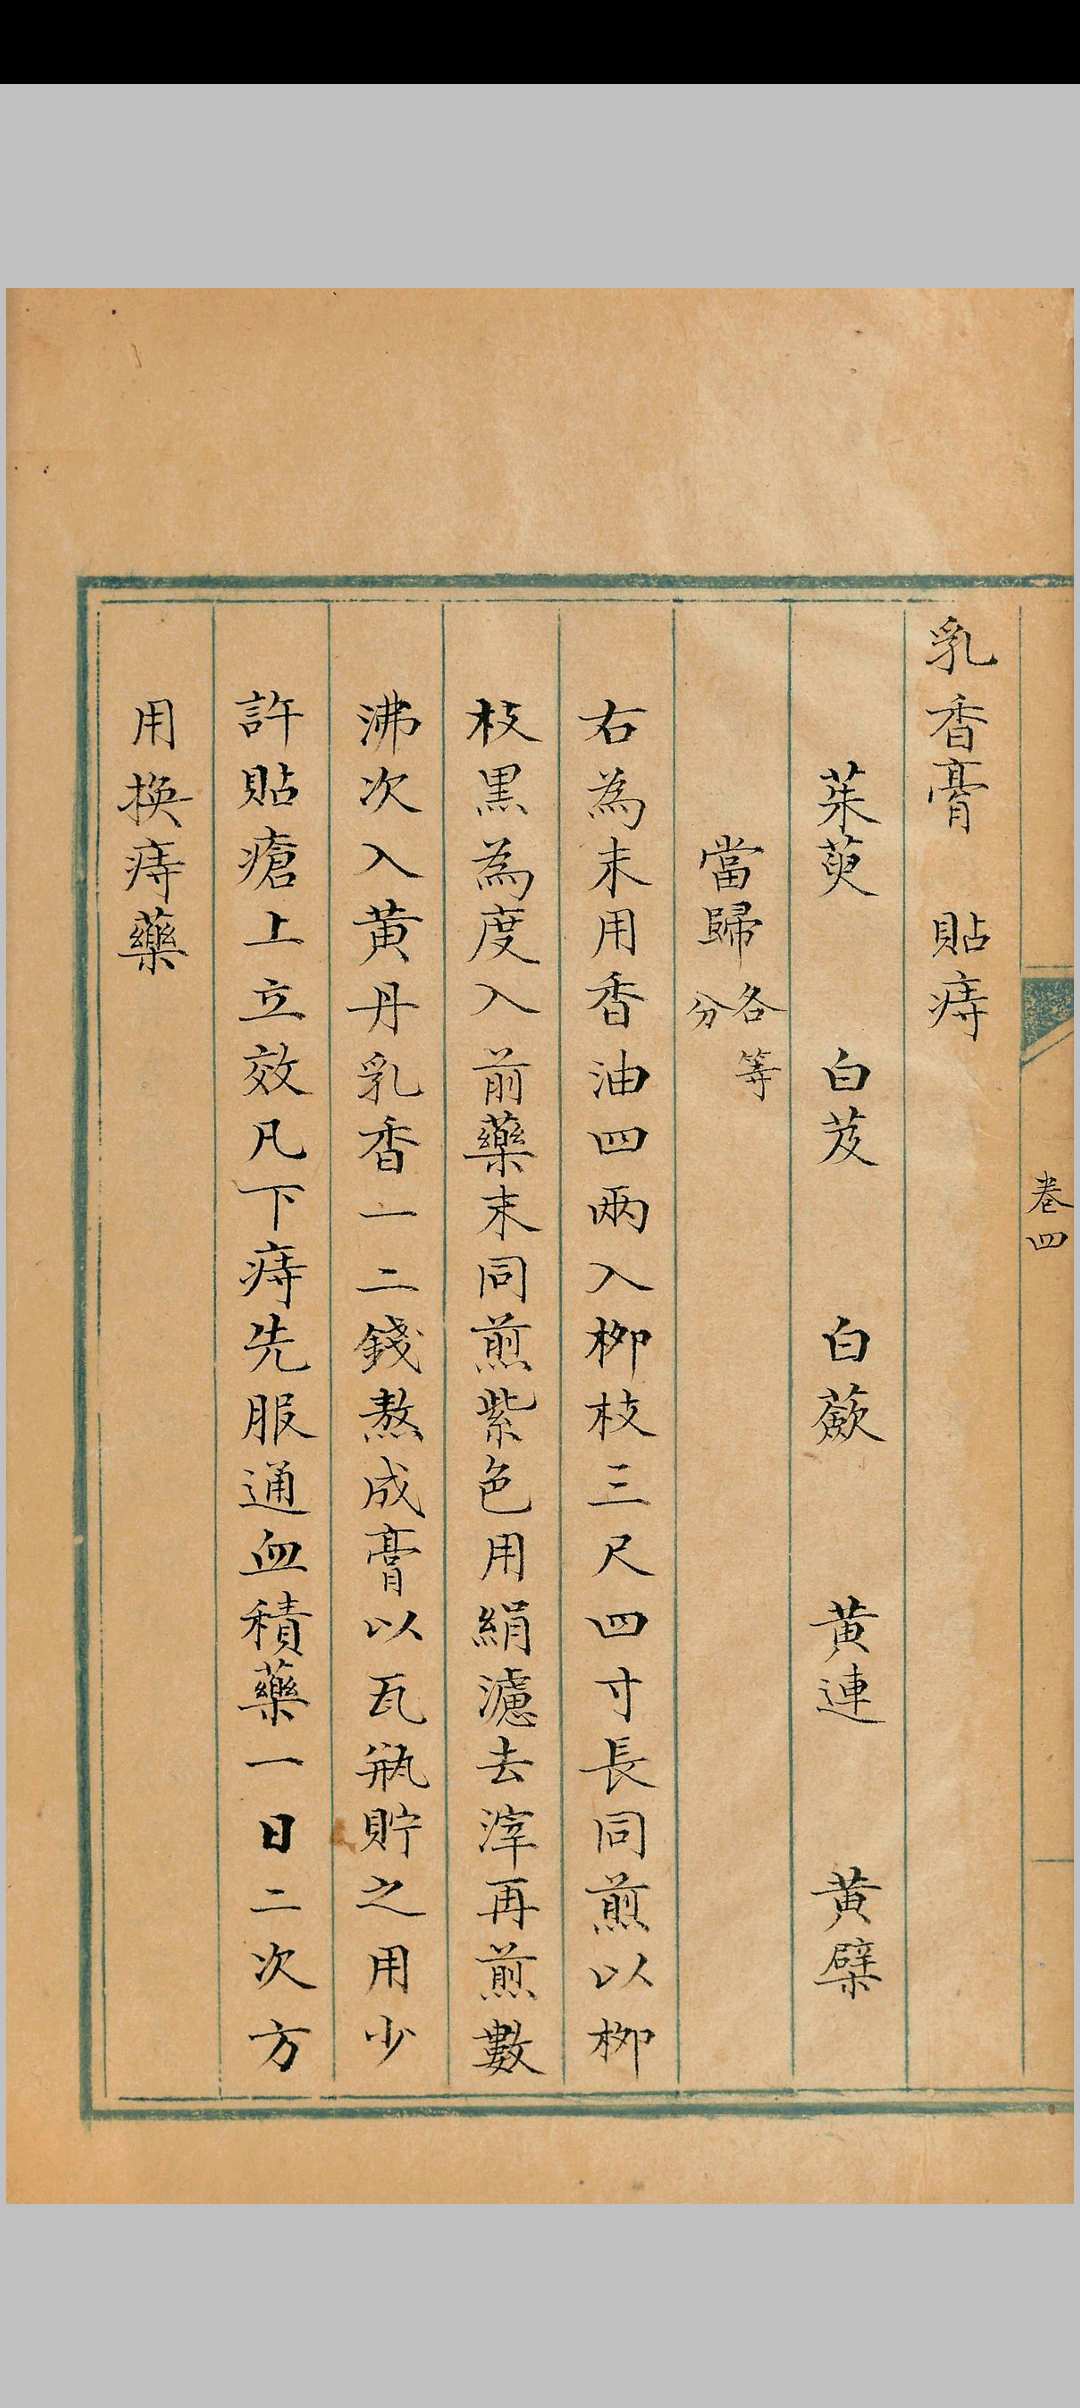 卷四
乳香膏 貼痔
茱萸 白芨 白蘞 黄連 黄檗
當歸各等分
右為末用香油四兩入柳枝三尺四寸長同煎以柳
枝黒為度入前藥末同煎紫色用絹濾去滓再煎數
沸次入黄丹乳香一二錢熬成膏以瓦瓶貯之用少
許貼瘡上立效凡下痔先服通血積藥一日二次方
用換痔藥